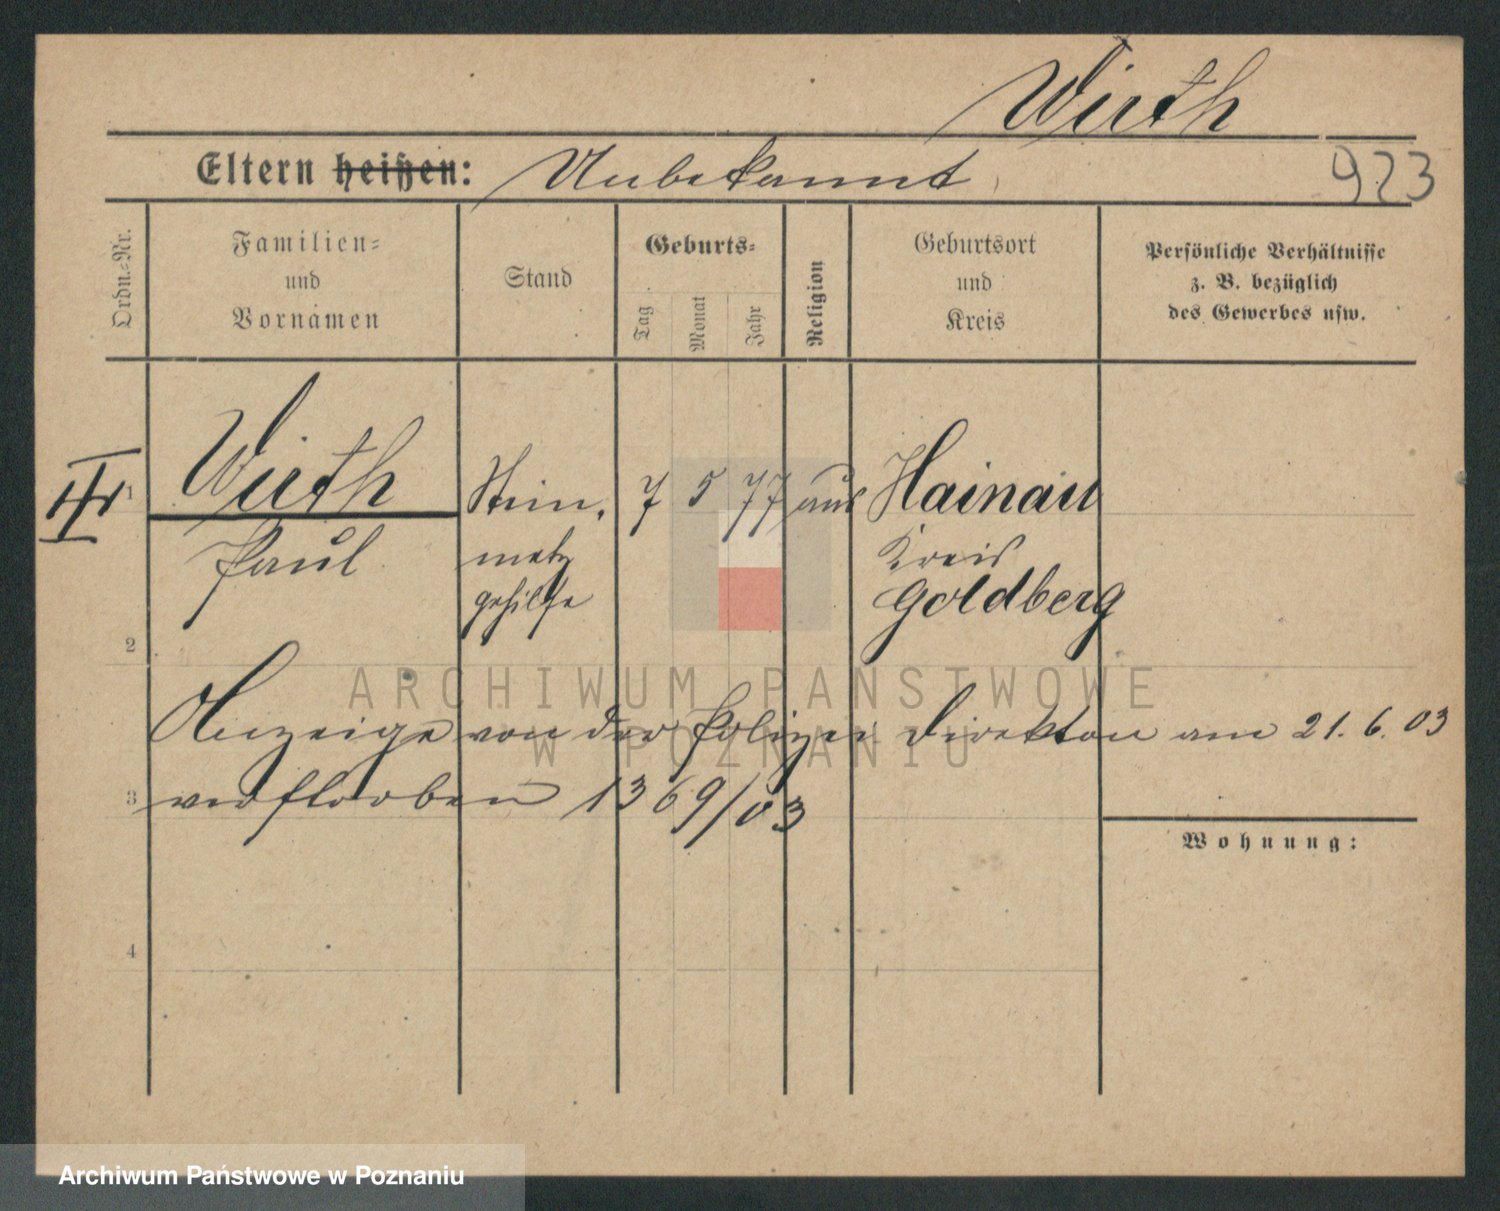 Wirth
Eltern heißen: Unbekannt
923
Ordn.-Nr.
Familien-
und
Vornamen
Stand
Geburts-
Tag
Monat
Jahr
Religion
Geburtsort
und
Kreis
Persönliche Verhältnisse
z. B. bezüglich
des Gewerbes usw.
III
1
Wirth
Paul
Stein,
metz
gehilfe
7 5 77
aus Hainau
Kreis
Goldberg
2
Anzeige von der Polizei Direkton am 21. 6. 03
3
verstorben 1369/03
Wohnung:
4
ARCHIWUM PAŃSTWOWE
W POZNANIU
Archiwum Państwowe w Poznaniu